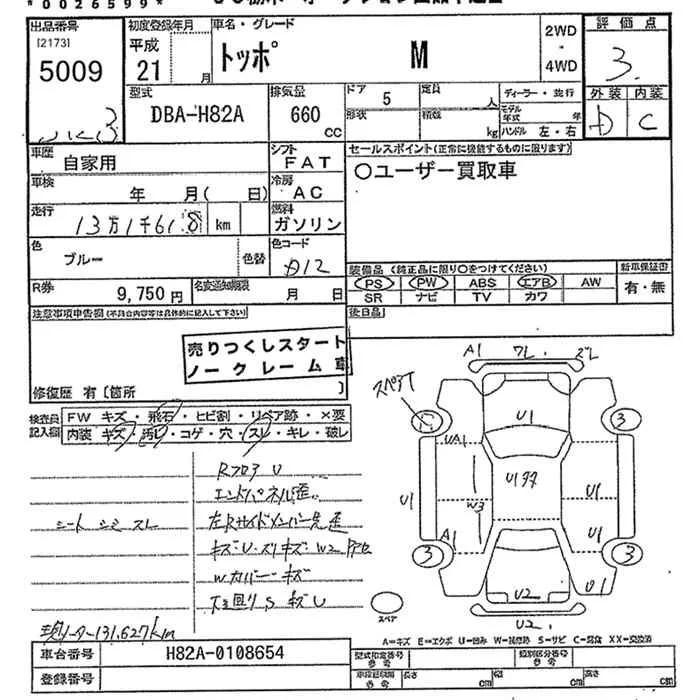 *0026599*
出品番号
[2173]
5009
初度登録年月
平成
21 月
車名・グレード
トッポ M
2WD
・
4WD
評価点
3.
型式
DBA-H82A
排気量
660
CC
ドア 5
形状
定員 人
積載 kg
ディーラー・並行
モデル年式 年
ハンドル 左・右
外装 内装
D C
車歴
自家用
シフト
FAT
セールスポイント(正常に機能するものに限ります)
○ユーザー買取車
車検
年 月( 日)
冷房
AC
走行
13万1千618 km
燃料
ガソリン
色
ブルー
色替
色コード
D12
装備品 (純正品に限り○をつけてください)
PS PW ABS エアB AW
SR ナビ TV カワ
新車保証書
有・無
R券
9,750 円
名変通知期限
月 日
後日品
注意事項申告欄(不具合内容等は具体的に記入して下さい)
売りつくしスタート
ノークレーム車
修復歴 有〔箇所 〕
検査員
記入欄
FW キズ・飛石・ヒビ割・リペア跡・×要
内装 キズ・汚レ・コゲ・穴・スレ・キレ・破レ
RフロアU
エンドパネル歪
シートシミスレ
左Rサイドメンバー先歪
キズ・U・スリキズ・W2
Wカバーキズ
下廻りSキズU
現メーター131,627km
A1 7L. 2L
スペアT
3
UA1
U1
U1
U1
W3
U1
A1
U1
3
3
U1
U2
U2.
スペア
A=キズ E=エクボ U=凹み W=補修跡 S=サビ C=腐食 XX=交換済
車台番号
H82A-0108654
型式指定番号
参考
類別区分番号
参考
登録番号
長さ cm
幅 cm
高さ cm